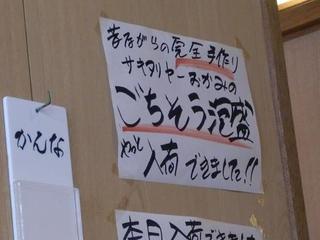 昔ながらの完全手作り
サキタリヤーおかみの
ごちそう泡盛
やっと入荷できました!!
かんな
本日入荷できました